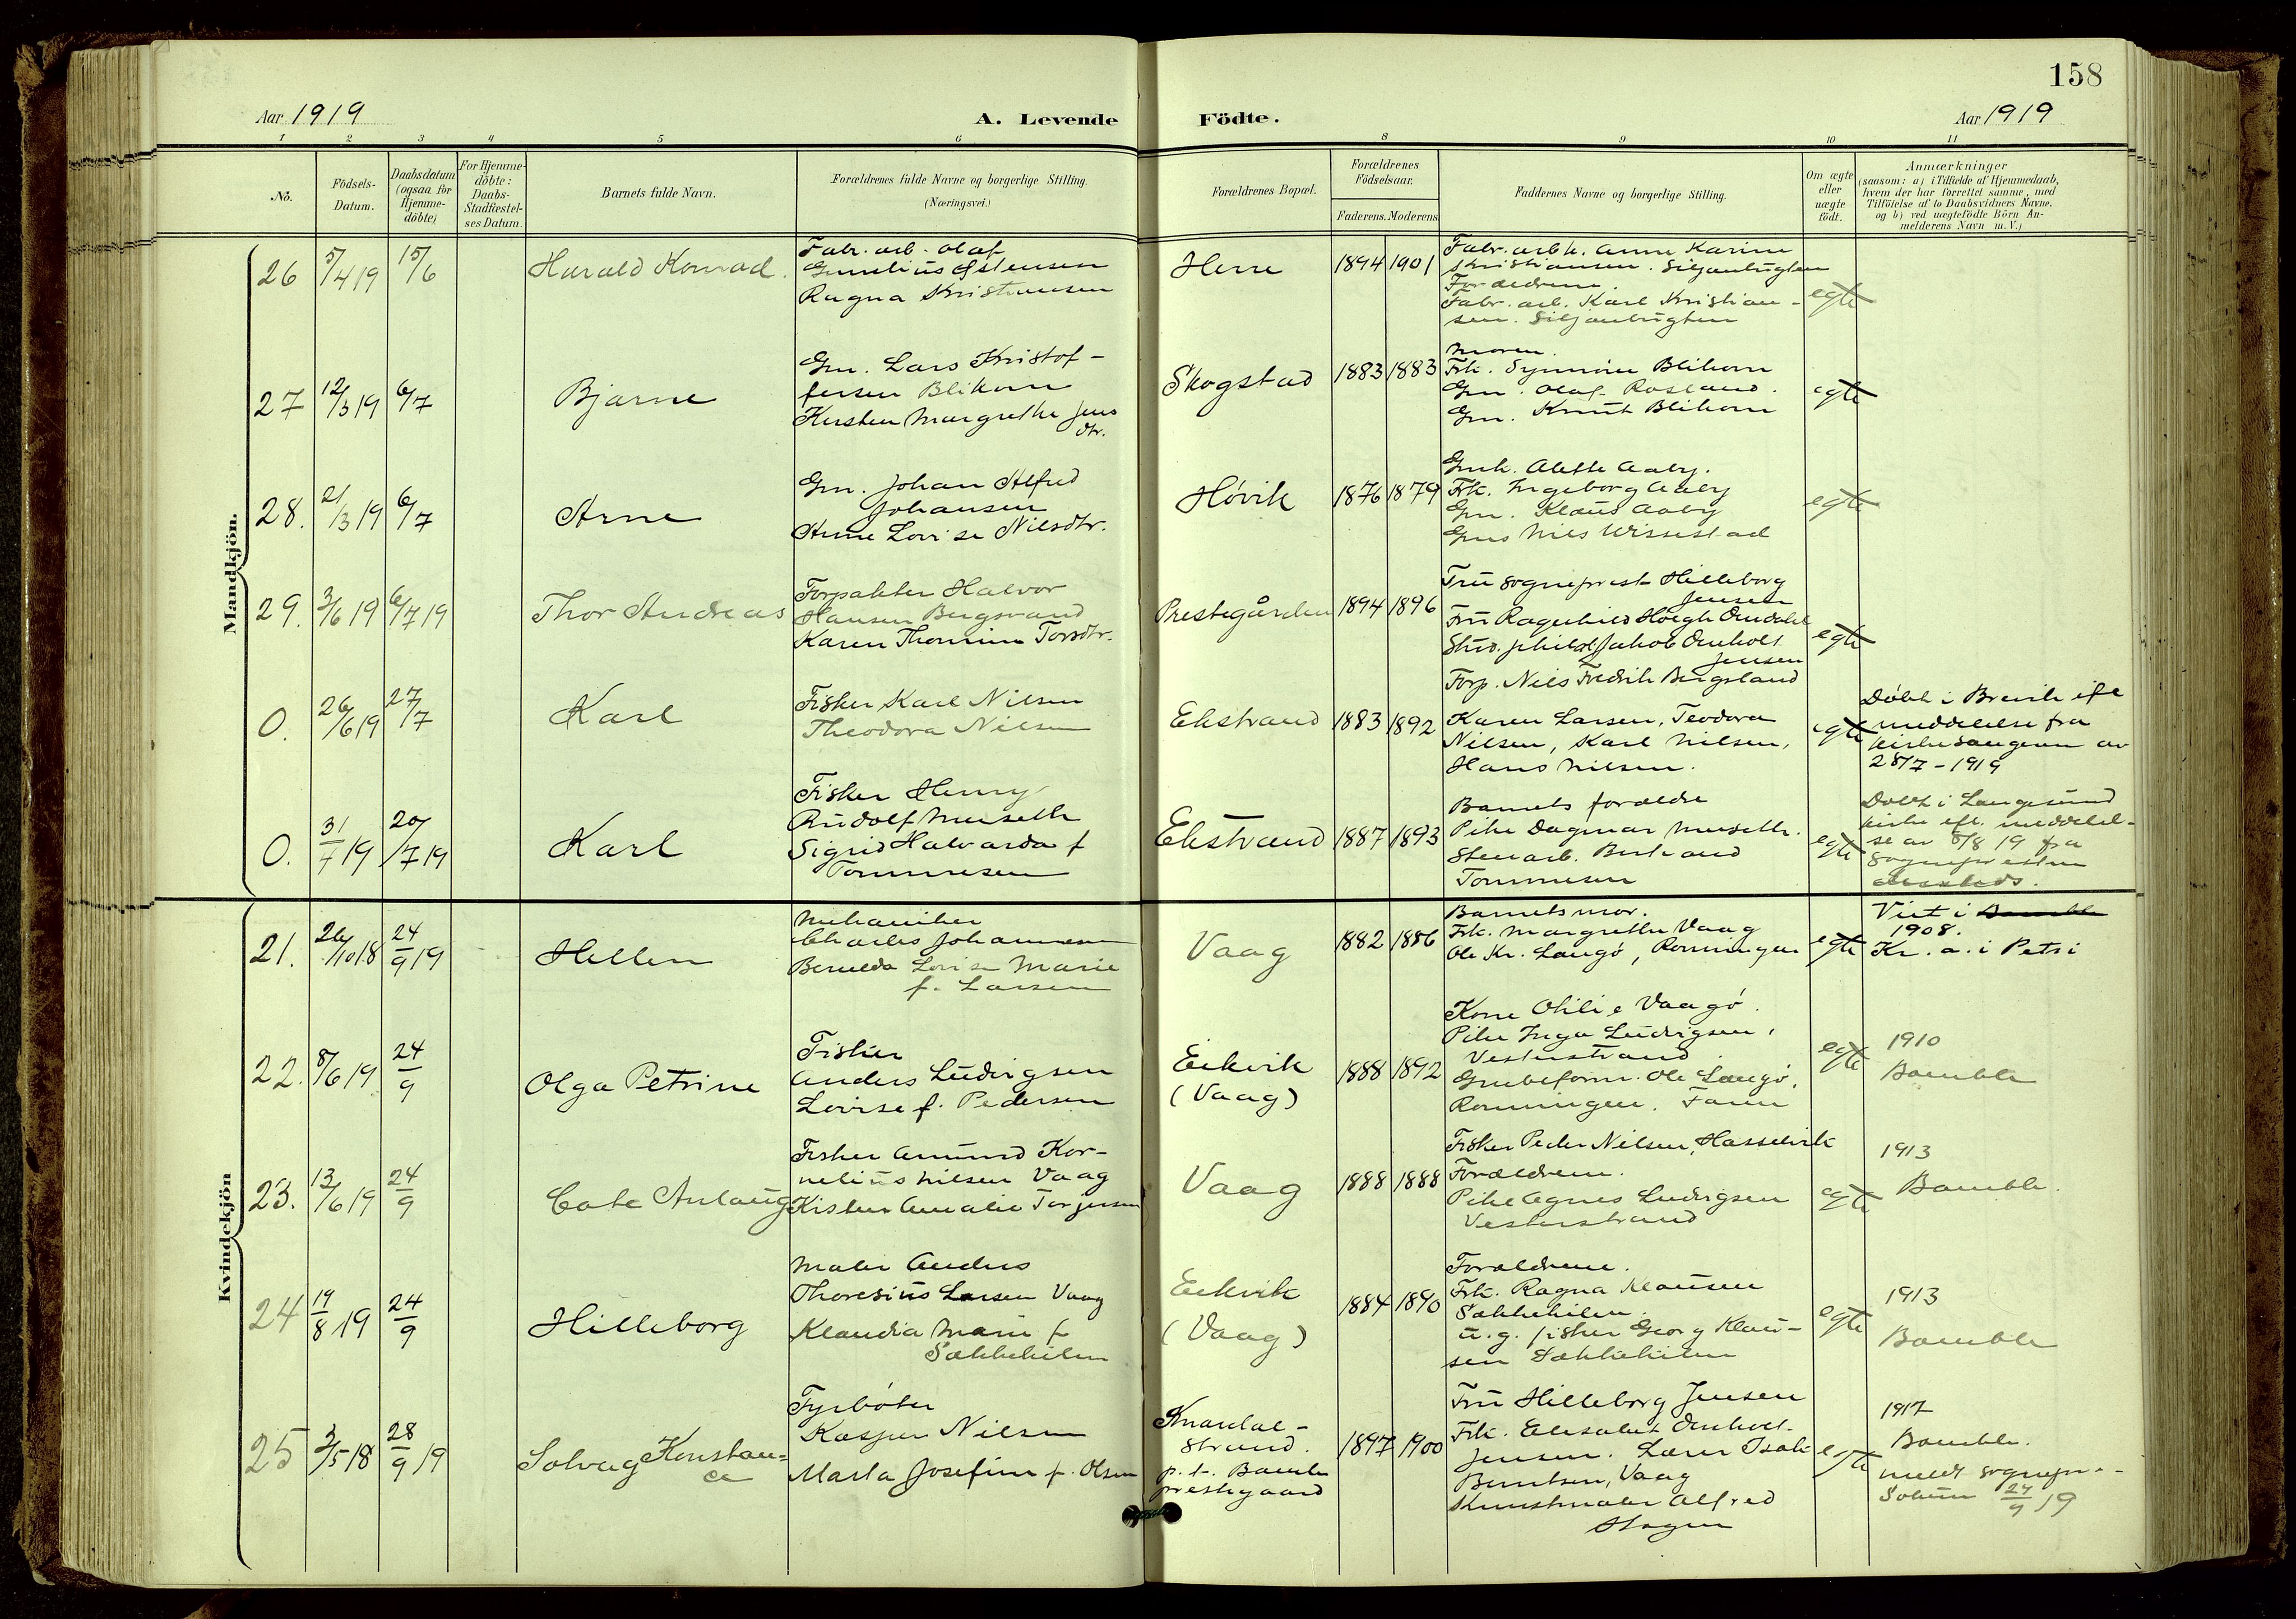 158
Aar 1919
A. Levende
Födte.
Aar 1919
1 2 3 4 5 6 8 9 10 11
No.
Födsels-Datum.
Daabsdatum (ogsaa for Hjemme-döbte)
For Hjemme-döbte: Daabs-Stadfæstel-ses Datum.
Barnets fulde Navn.
Forældrenes fulde Navne og borgerlige Stilling.
(Næringsvei.)
Forældrenes Bopæl.
Forældrenes Födselsaar.
Faderens. Moderens.
Faddernes Navne og borgerlige Stilling.
Om ægte eller uægte födt.
Anmærkninger
(saasom: a) i Tilfælde af Hjemmedaab,
hvem der har forrettet samme, med
Tilföielse af to Daabsvidners Navne,
og b) ved uægtefödte Börn An-
melderens Navn m. V.)
Mandkjön.
26 5/4 19 15/6 Harald Konrad.
Fabr. arb. Olaf
Gunelius Østensen
Ragna Kristiansen
Herre 1894 1901
Fabr. arb k. Anne Karine
Kristiansen. Siljanbugten
Forældrene.
Fabr. arb. Karl Kristian-
sen. Siljanbugten
egte
27 12/3 19 6/7 Bjarne
Gm. Lars Kristof-
fersen Blikom
Kirsten Margrethe Jens
dtr.
Skogstad 1883 1883
Moren.
Frk. Synnöve Blikom
Gm. Olaf Rosland.
Gm. Knut Blikom
egte
28. 21/3 19 6/7 Arne
Gm. Johan Alfred
Johansen
Anne Lovise Nilsdtr.
Hövik 1876 1879
Gmk. Alette Aaby.
Frk. Ingeborg Aaby
Gm. Klaus Aaby
Gms Nils Wissestad
egte
29. 3/6 19 6/7 19 Thor Andreas
Forpakter Halvor
Hansen Bergsland
Karen Thomine Torsdtr.
Prestegården 1894 1896
Fru sogneprest Hilleborg
Jensen
Fru Ragnhild Höegh Omdahl
Stud. philol Jakob Omholt
Jensen
Forp. Nils Fredrik Bergsland
egte
0. 26/6 19 27/7 Karl
Fisker Karl Nilsen
Theodora Nilsen
Ekstrand 1883 1892
Karen Larsen, Teodora
Nilsen, Karl Nilsen,
Hans Nilsen.
egte
Döbt i Brevik ifl
meddelelse fra
kirkesangeren av
28/7 - 1919
0. 31/1 19 20/7 19 Karl
Fisker Henry
Rudolf Museth
Sigrid Halvarda f
Tommesen
Ekstrand 1887 1893
Barnets forældre
Pike Dagmar Museth.
Stenarb. Bertrand
Tommesen
egte
Döbt i Langesund
kirke efl. meddelel-
se av 6/8 19 fra
sognepresten
Kvindekjön
21. 26/10 18 24/9 19 Hellen
Mekaniker
Charles Johannesen
Lovise Marie
f. Larsen
Vaag 1882 1886
Barnets mor.
Frk. Margrethe Vaag
Ole Kr. Langö, Rönningen
egte
Viet i Bamble
1908.
Kr. a. i Petri
22. 8/6 19 24/9 Olga Petrine
Fisker
Anders Ludvigsen
Lovise f. Pedersen
Eikvik
(Vaag)
1888 1892
Kone Otilie Vaagö.
Pike Inga Ludvigsen,
Vesterstrand
Grubeform. Ole Langö,
Rönningen. Faren
egte
1910
Bamble
23. 13/6 19 24/9 Cate Anlaug
Fisker Amund Kor-
nelius Nilsen Vaag
Kisten Amalie Torjersen
Vaag 1888 1888
Fisker Peder Nilsen, Hasselvik
Forældrene.
Pike Agnes Ludvigsen
Vesterstrand
egte
1913
Bamble.
24 19/8 19 24/9 Hilleborg
Maler Anders
Thoresius Larsen Vaag
Klaudia Marie f
Sækkekilen
Eekvik
(Vaag)
1884 1890
Forældrene.
Frk. Ragna Klausen
Sækkekilen.
u. g. fisker Georg Klau-
sen Sækkekilen
egte
1913
Bamble
25 3/5 18 28/9 19 Solveig Konstan-
ce
Fyrböter
Kasper Nilsen
Marta Josefine f. Olsen
Knardal-
strand.
p. t. Bamble
prestegaard
1897 1900
Fru Hilleborg Jensen
Frk. Elisabet Omholt-
Jensen. Lærer Isak
Berntsen, Vaag
Kunstmaler Alfred
Hagen
egte
1917
Bamble.
meldt sognepr.
Solum 24/9 19